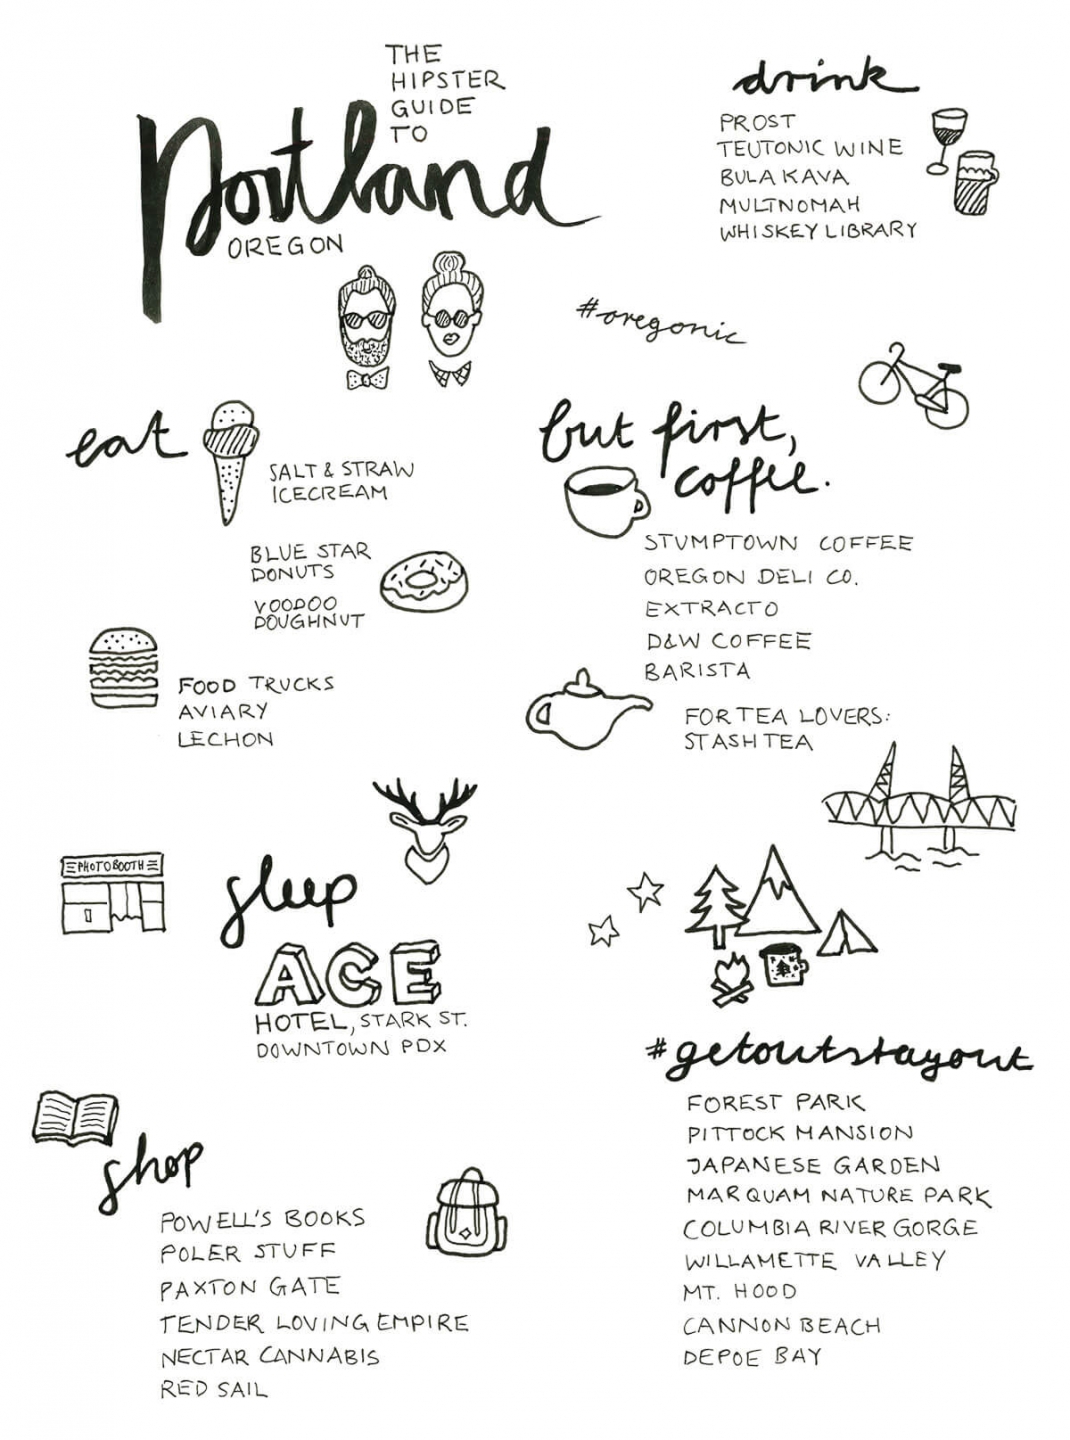 THE
HIPSTER
GUIDE
TO
Portland
OREGON
drink
PROST
TEUTONIC WINE
BULA KAVA
MULTNOMAH
WHISKEY LIBRARY
#oregonic
eat
SALT & STRAW
ICECREAM
BLUE STAR
DONUTS
VOODOO
DOUGHNUT
FOOD TRUCKS
AVIARY
LECHON
but first,
coffee.
STUMPTOWN COFFEE
OREGON DELI CO.
EXTRACTO
D&W COFFEE
BARISTA
FOR TEA LOVERS:
STASH TEA
PHOTOBOOTH
sleep
ACE
HOTEL, STARK ST.
DOWNTOWN PDX
shop
POWELL'S BOOKS
POLER STUFF
PAXTON GATE
TENDER LOVING EMPIRE
NECTAR CANNABIS
RED SAIL
#getoutstayout
FOREST PARK
PITTOCK MANSION
JAPANESE GARDEN
MARQUAM NATURE PARK
COLUMBIA RIVER GORGE
WILLAMETTE VALLEY
MT. HOOD
CANNON BEACH
DEPOE BAY